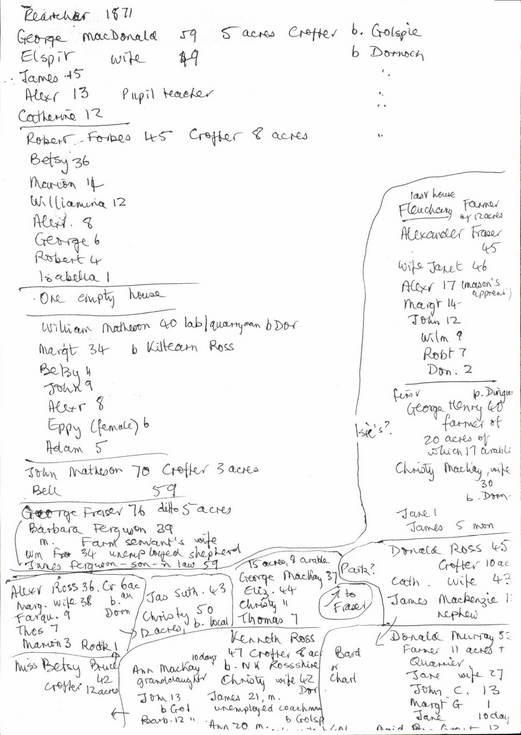 Rearchar 1871
George MacDonald 59 5 acres Crofter b. Golspie
Elspit wife 49 b Dornoch
James 15 "
Alexr 13 Pupil teacher "
Catherine 12
Robert Forbes 45 Crofter 8 acres "
Betsy 36
Marion 14
Williamina 12
Alexr. 8
George 6
Robert 4
Isabella 1
One empty house
William Matheson 40 lab/quarryman b Dor
Margt 34 b Kiltearn Ross
Betsy 11
John 9
Alexr 8
Eppy (female) 6
Adam 5
John Matheson 70 Crofter 3 acres
Bell 59
George Fraser 76 ditto 5 acres
Barbara Ferguson 39
m. Farm servant's wife
Wm Fra 34 unemployed shepherd
James Ferguson - son-n law 59
Alexr Ross 36. Cr 6ac
Marg. wife 38 b. au
Farqu. 9 Dorn
Thos 7
Marion 3 Rodk 1
Miss Betsy Bruce
42
Crofter
12 acres
Jas Suth. 43
Christy 50
12 acres, b. local
15 acres, 8 arable
George Mackay 37
Eliz. 44
Christy 11
Thomas 7
Kenneth Ross
47 Crofter 8 ac
b. NK Rossshire
Christy wife 42
Dor
James 21, m.
unemployed coachman
b Golsp
Ann 20 m.
Ann Mackay 10 days
grandaughter
John 13
b Gol
Barb. 12 "
last house
Fleuchary Farmer
of 12 acres
Alexander Fraser
45
Wife Janet 46
Alexr 17 (mason's
apprent)
Margt 14
John 12
Wilm 9
Robt 7
Don. 2
Isie's?
first
George Henry 60
farmer of
20 acres of
which 17 arable
Christy Mackay, wife
30
b Dorn
Jane 1
James 5 mon
Paita?
↑ to
Fraser
Bard
or
Chart
Donald Ross 45
Crofter 10 ac
Cath. wife 43
James Mackenzie
nephew
Donald Murray
Farmer 11 acres +
Quarrier
Jane wife 27
John C. 13
Margt G 1
Jane 10 day